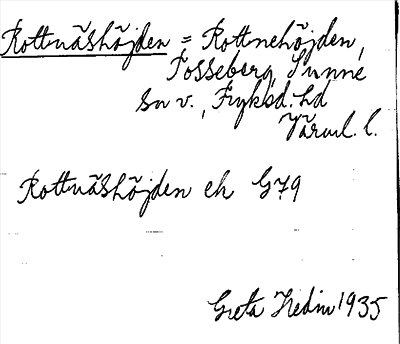 Rottnäshöjden = Rottnehöjden,
Tosseberg, Sunne
sn v., Fryksd. hd
Värml. l.
Rottnäshöjden eh G79
Greta Hedin 1935